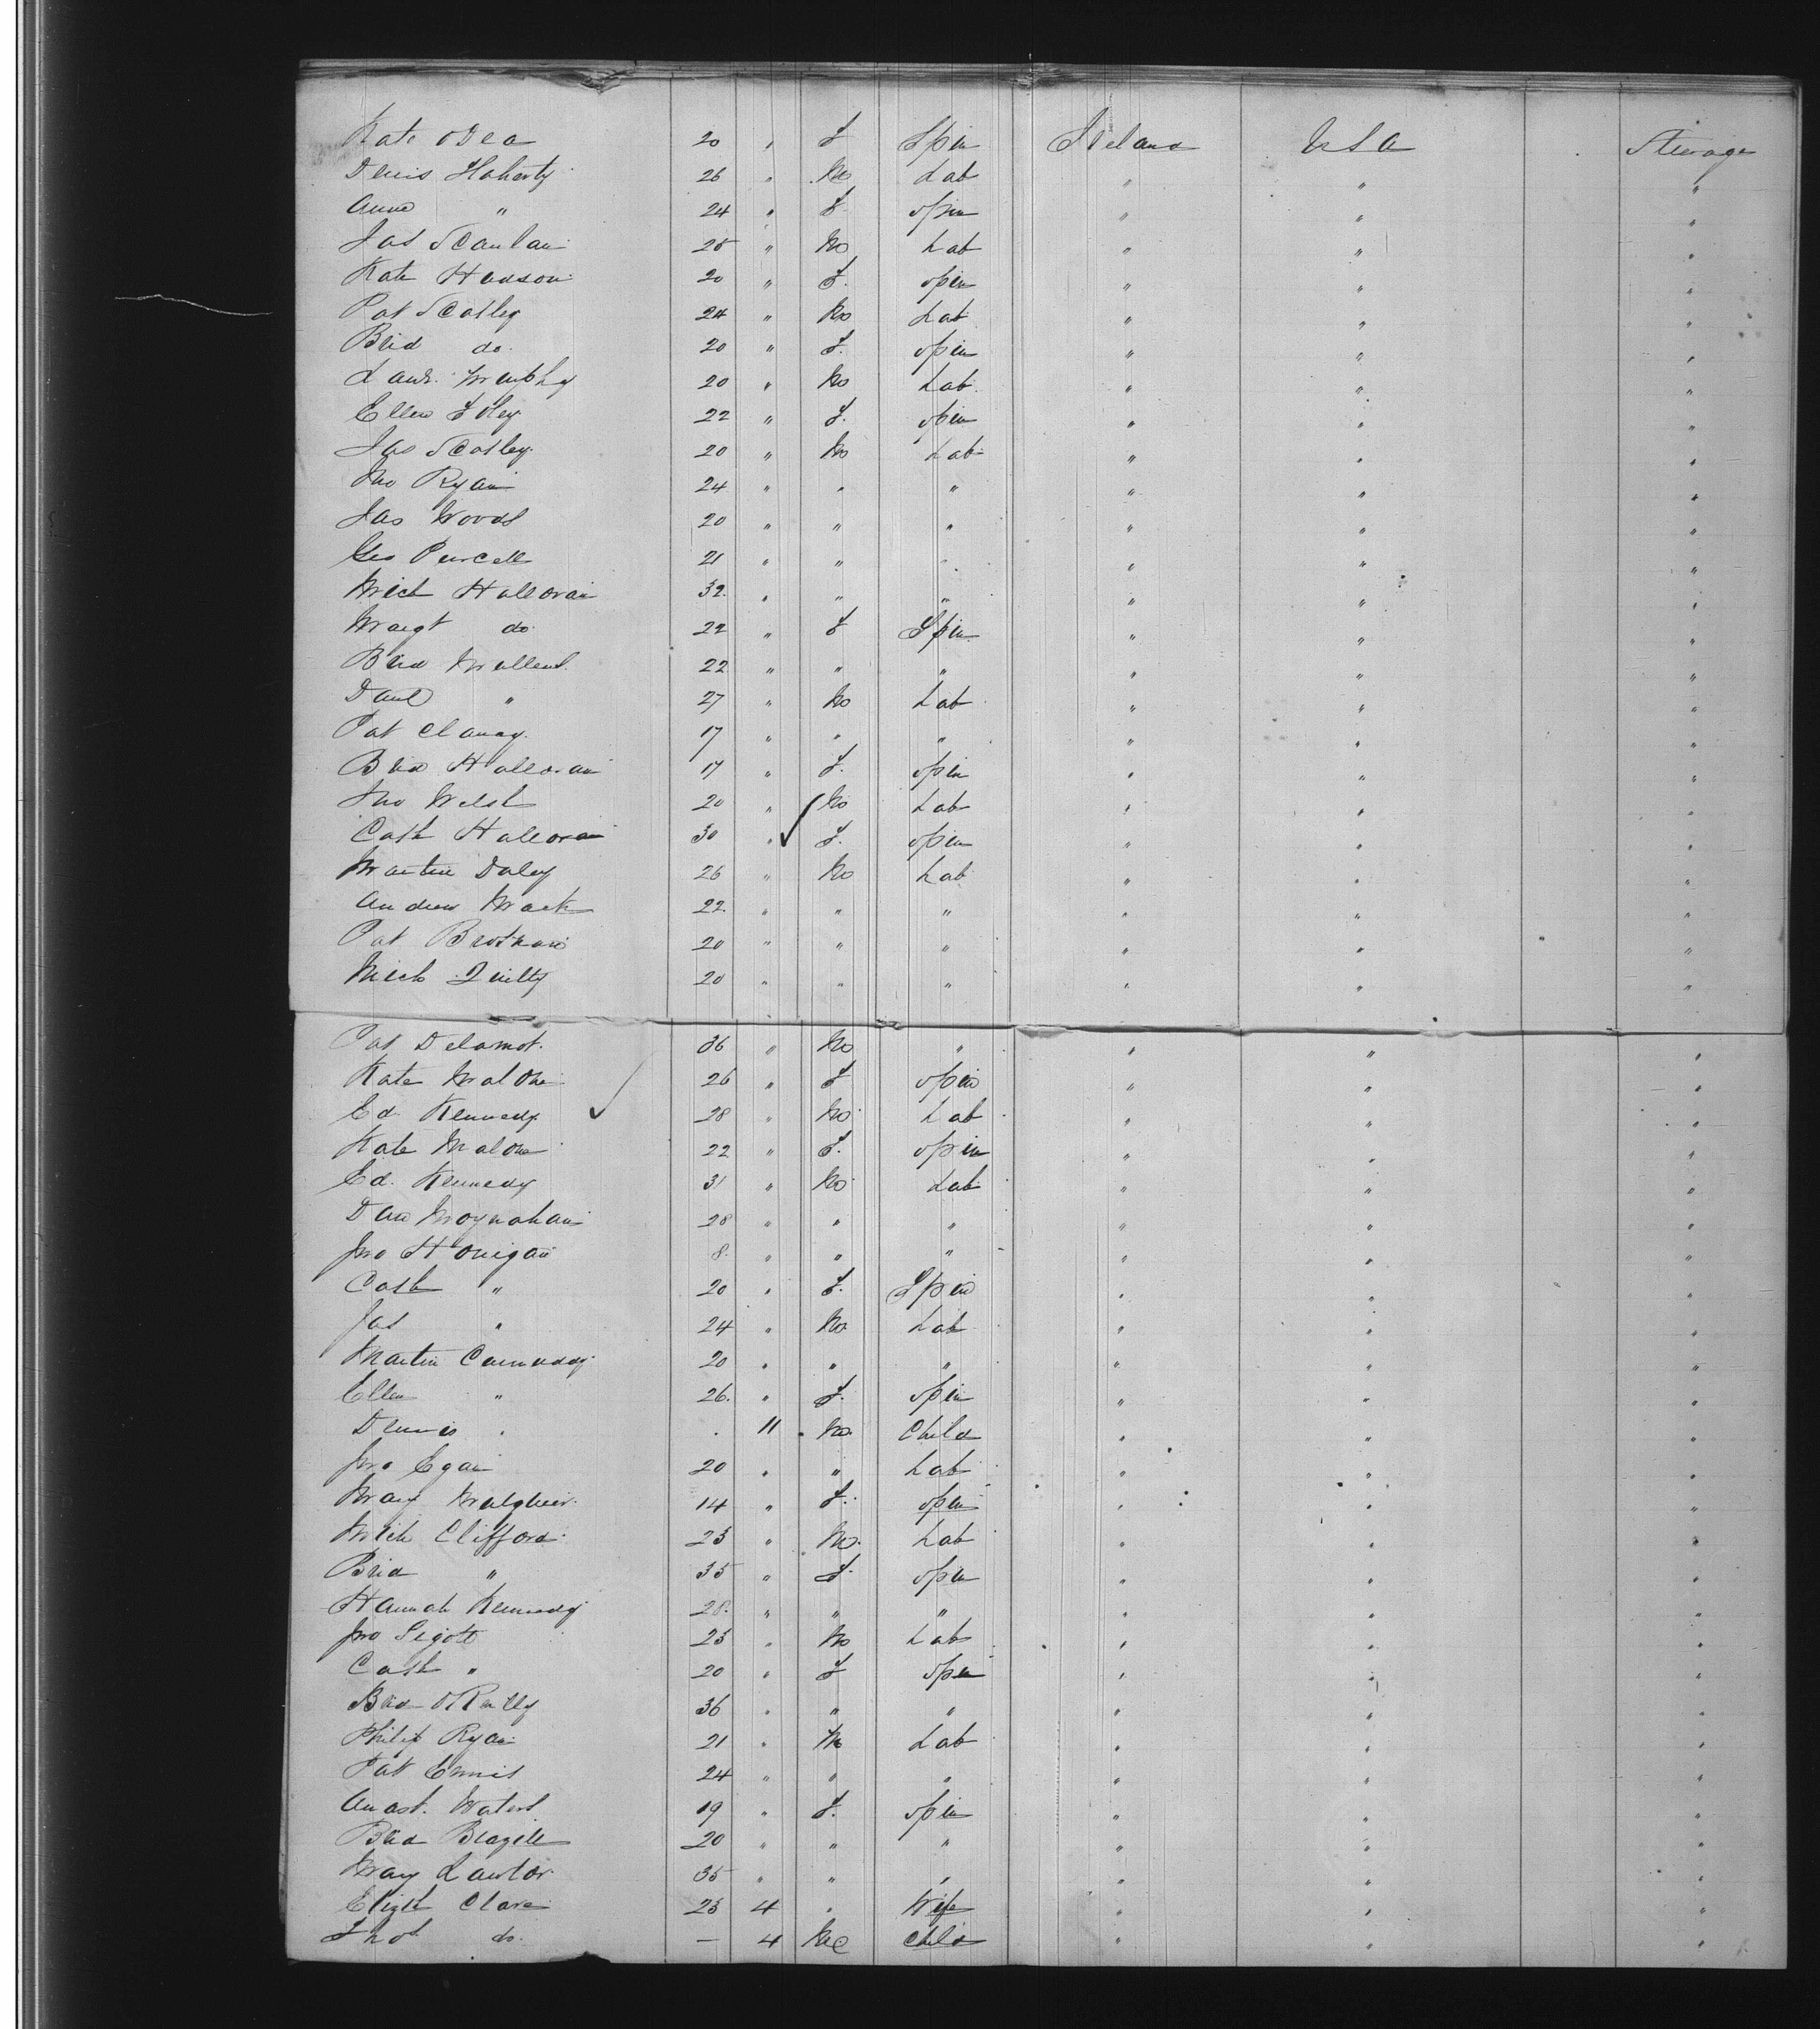 Kate ODea 20 " F Spin Ireland USA Steerage
Denis Flaherty 26 " M Lab " " "
Anne " 24 " F Spin " " "
Jas Scanlan 25 " M Lab " " "
Kate Hudson 20 " F. Spin " " "
Pat Scatley 24 " M Lab " " "
Brid do. 20 " F. Spin " " "
Laur. Murphy 20 " M Lab. " " "
Ellen Foley 22 " F. Spin " " "
Jas Scatley. 20 " M Lab " " "
Jno Ryan 24 " " " " " "
Jas Woods 20 " " " " " "
Geo Purcell 21 " " " " " "
Mich Halloran 32. " " " " " "
Margt do 22 " F Spin " " "
Brid Mullens. 22 " " " " " "
Danl " 27 " M Lab " " "
Pat Clancy. 17 " " " " " "
Brid Halloran 17 " F. Spin " " "
Jno Welsh 20 " M Lab " " "
Cath Halloran 30 " F. Spin " " "
Martin Daley 26 " M Lab " " "
Andrew Mack 22. " " " " " "
Pat 20 " " " " " "
Mich Quilty 20 " " " " " "
Pat Delamot. 36 " M " " " "
Kate Malone 26 " F Spin " " "
Ed. Kennedy 28 " M Lab " " "
Kate Malone 22 " F. Spin " " "
Ed. Kennedy 31 " M Lab " " "
Dan Moynahan 28 " " " " " "
Jno Honigan 8. " " " " " "
Cath " 20 " F. Spin " " "
Jas " 24 " M Lab " " "
Martin Carmaddy 20 " " " " " "
Ellen " 26. " F. Spin " " "
Dennis " . 11 M. Child " " "
Jno Egan 20 " " Lab " " "
Mary 14 " F. Spin " " "
Mich Clifford 23 " M. Lab " " "
Brid " 35 " F Spin " " "
Hannah Kennedy 28. " " " " " "
Jno Sigott 23 " M Lab " " "
Cath " 20 " F Spin " " "
Brid OReilly 36 " " " " " "
Philip Ryan 21 " M Lab " " "
Pat Ennis 24 " " " " " "
Anast. Waters 19 " F. Spin " " "
Brid Brazill 20 " " " " " "
Mary Lawlor 35 " " " " " "
Elizth Clare 23 4 " Wife " " "
Thos do. — 4 M Child " " "